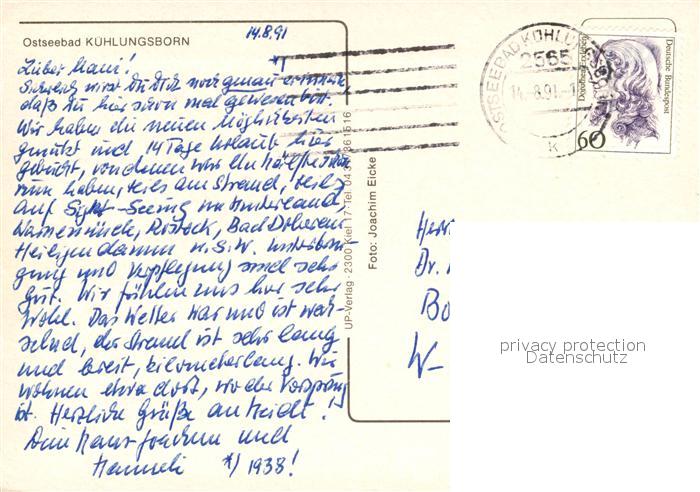 14.8.91
Ostseebad KÜHLUNGSBORN
Lieber Hani!
Sicherlich wirst Du Dich noch genau erinnern, *)
daß Du hier schon mal gewesen bist.
Wir haben die neuen Möglichkeiten
genutzt und 14 Tage Urlaub hier
gebucht, von denen wir die Hälfte
nun haben, teils am Strand, teils
auf Sight-Seeing im Hinterland,
Warnemünde, Rostock, Bad Doberan
Heiligendamm u.s.w. Unterbrin-
gung und Verpflegung sind sehr
gut. Wir fühlen uns hier sehr
wohl. Das Wetter war und ist wech-
selnd, der Strand ist sehr lang
und breit, kilometerlang. Wir
wohnen etwa dort, wo der Vorsprung
ist. Herzliche Grüße an Heidi!
Dein Hans-Joachim und
Hanneli *) 1938!
UP-Verlag · 2300 Kiel 17 · Tel.
Foto: Joachim Eicke
OSTSEEBAD KÜHLUNGSBORN
2565
14.-8.91.-1
k
Deutsche Bundespost
Dorothea Erxleben
60
Herr
Dr.
Bo
W-
privacy protection
Datenschutz